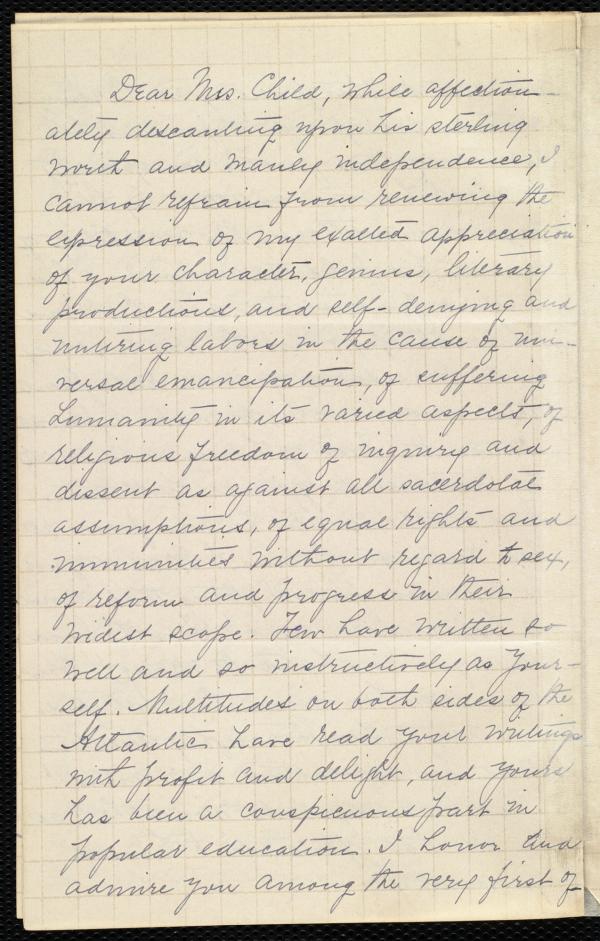 Dear Mrs. Child, while affection-
ately descanting upon his sterling
worth and manly independence, I
cannot refrain from renewing the
expression of my exalted appreciation
of your character, genius, literary
productions, and self-denying and
untiring labors in the cause of uni-
versal emancipation, of suffering
humanity in its varied aspects, of
religious freedom of inquiry and
dissent as against all sacerdotal
assumptions, of equal rights and
immunities without regard to sex,
of reform and progress in their
widest scope. Few have written so
well and so instructively as your-
self. Multitudes on both sides of the
Atlantic have read your writings
with profit and delight, and yours
has been a conspicuous part in
popular education. I honor and
admire you among the very first of